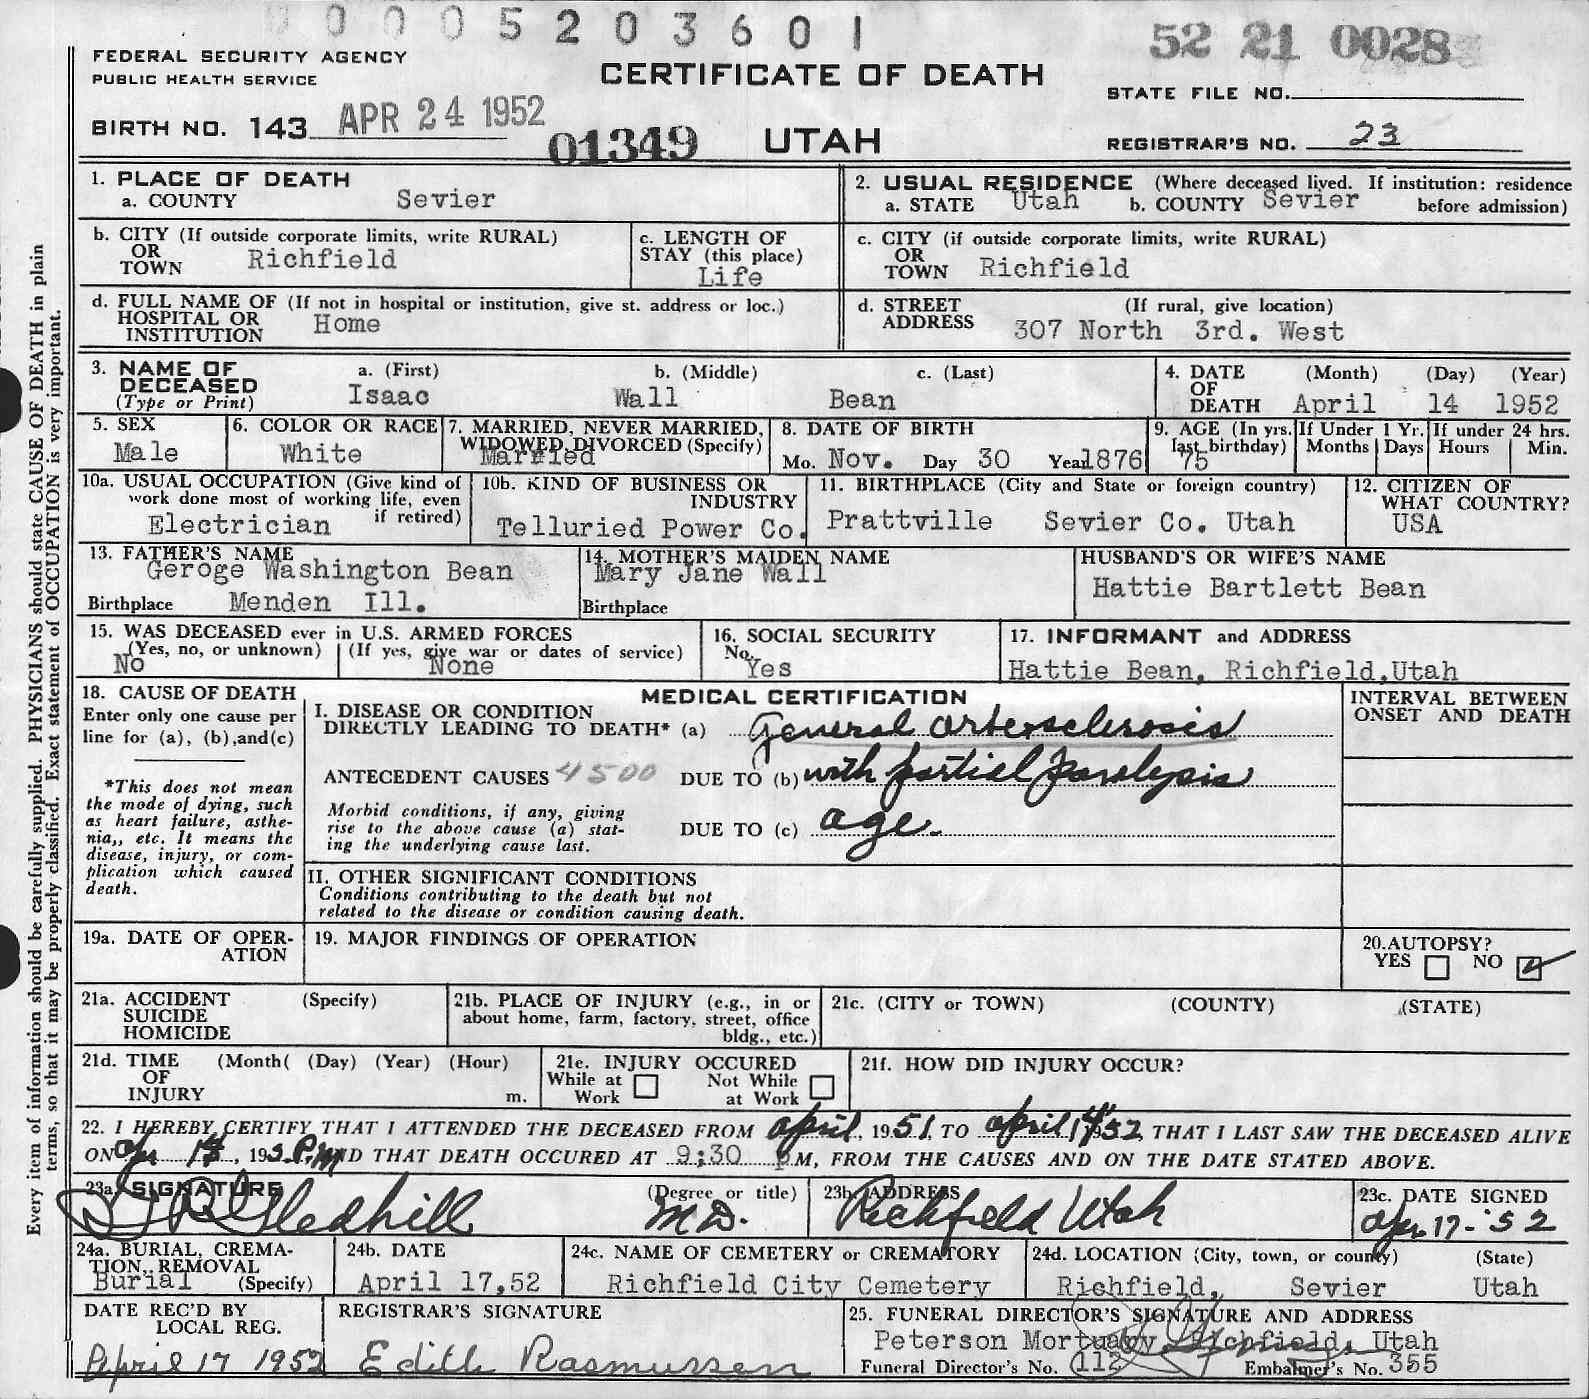 0 0 0 5 2 0 3 6 0 1
52 21 0028
FEDERAL SECURITY AGENCY
PUBLIC HEALTH SERVICE
CERTIFICATE OF DEATH
STATE FILE NO.
BIRTH NO. 143 APR 24 1952
01349 UTAH
REGISTRAR'S NO. 23
1. PLACE OF DEATH
a. COUNTY Sevier
2. USUAL RESIDENCE (Where deceased lived. If institution: residence
a. STATE Utah b. COUNTY Sevier before admission)
b. CITY (If outside corporate limits, write RURAL)
OR
TOWN Richfield
c. LENGTH OF
STAY (this place)
Life
c. CITY (if outside corporate limits, write RURAL)
OR
TOWN Richfield
d. FULL NAME OF (If not in hospital or institution, give st. address or loc.)
HOSPITAL OR
INSTITUTION Home
d. STREET (If rural, give location)
ADDRESS 307 North 3rd. West
3. NAME OF
DECEASED
(Type or Print)
a. (First) b. (Middle) c. (Last)
Isaac Wall Bean
4. DATE (Month) (Day) (Year)
OF
DEATH April 14 1952
5. SEX
Male
6. COLOR OR RACE
White
7. MARRIED, NEVER MARRIED,
WIDOWED, DIVORCED (Specify)
Married
8. DATE OF BIRTH
Mo. Nov. Day 30 Year 1876
9. AGE (In yrs.
last birthday)
75
If Under 1 Yr.
Months Days
If under 24 hrs.
Hours Min.
10a. USUAL OCCUPATION (Give kind of
work done most of working life, even
if retired)
Electrician
10b. KIND OF BUSINESS OR
INDUSTRY
Telluried Power Co.
11. BIRTHPLACE (City and State or foreign country)
Prattville Sevier Co. Utah
12. CITIZEN OF
WHAT COUNTRY?
USA
13. FATHER'S NAME
Geroge Washington Bean
Birthplace Menden Ill.
14. MOTHER'S MAIDEN NAME
Mary Jane Wall
Birthplace
HUSBAND'S OR WIFE'S NAME
Hattie Bartlett Bean
15. WAS DECEASED ever in U.S. ARMED FORCES
(Yes, no, or unknown) (If yes, give war or dates of service)
No None
16. SOCIAL SECURITY
No.
Yes
17. INFORMANT and ADDRESS
Hattie Bean, Richfield,Utah
18. CAUSE OF DEATH
Enter only one cause per
line for (a), (b),and(c)
*This does not mean
the mode of dying, such
as heart failure, asthe-
nia,, etc. It means the
disease, injury, or com-
plication which caused
death.
MEDICAL CERTIFICATION
I. DISEASE OR CONDITION
DIRECTLY LEADING TO DEATH* (a) General arterosclerosis
ANTECEDENT CAUSES 4500 DUE TO (b) with partial paralysis
Morbid conditions, if any, giving
rise to the above cause (a) stat-
ing the underlying cause last.
DUE TO (c) age.
II. OTHER SIGNIFICANT CONDITIONS
Conditions contributing to the death but not
related to the disease or condition causing death.
INTERVAL BETWEEN
ONSET AND DEATH
19a. DATE OF OPER-
ATION
19. MAJOR FINDINGS OF OPERATION
20.AUTOPSY?
YES NO ✓
21a. ACCIDENT (Specify)
SUICIDE
HOMICIDE
21b. PLACE OF INJURY (e.g., in or
about home, farm, factory, street, office
bldg., etc.)
21c. (CITY or TOWN) (COUNTY) (STATE)
21d. TIME (Month( (Day) (Year) (Hour)
OF
INJURY m.
21e. INJURY OCCURED
While at Work
Not While at Work
21f. HOW DID INJURY OCCUR?
22. I HEREBY CERTIFY THAT I ATTENDED THE DECEASED FROM april, 1951, TO april 14 1952, THAT I LAST SAW THE DECEASED ALIVE
ON Apr 14, 195 P.M AND THAT DEATH OCCURED AT 9:30 PM, FROM THE CAUSES AND ON THE DATE STATED ABOVE.
23a. SIGNATURE (Degree or title)
Gledhill M.D.
23b. ADDRESS
Richfield Utah
23c. DATE SIGNED
Apr. 17-'52
24a. BURIAL, CREMA-
TION, REMOVAL
Burial (Specify)
24b. DATE
April 17,52
24c. NAME OF CEMETERY or CREMATORY
Richfield City Cemetery
24d. LOCATION (City, town, or county) (State)
Richfield, Sevier Utah
DATE REC'D BY
LOCAL REG.
April 17 1952
REGISTRAR'S SIGNATURE
Edith Rasmussen
25. FUNERAL DIRECTOR'S SIGNATURE AND ADDRESS
Peterson Mortuary Richfield, Utah
Funeral Director's No. 112 Embalmer's No. 355
Every item of information should be carefully supplied. PHYSICIANS should state CAUSE OF DEATH in plain
terms, so that it may be properly classified. Exact statement of OCCUPATION is very important.